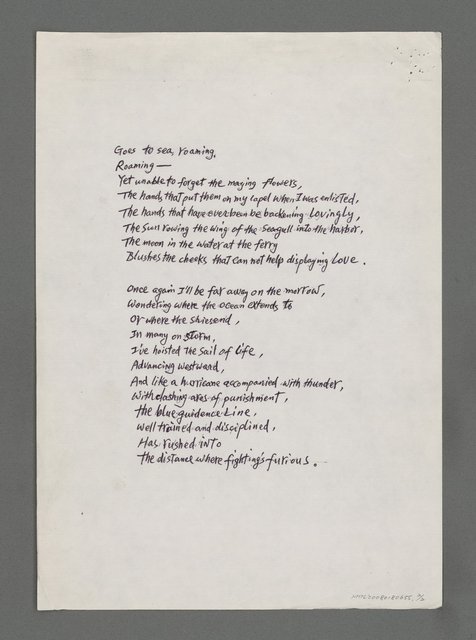 Goes to sea, roaming.
Roaming—
Yet unable to forget the maying flowers,
The hands that put them on my lapel when I was enlisted,
The hands that have ever been be backening lovingly,
The sun rowing the wing of the seagull into the harbor,
The moon in the water at the ferry
Blushes the cheeks that can not help displaying Love.
Once again I'll be far away on the morrow,
Wondering where the ocean extends to
Or where the skiesend,
In many on storm,
I've hoisted the sail of life,
Advancing westward,
And like a hurricane accompanied with thunder,
With clashing axes of punishment,
The blue guidence Line,
Well trained and disciplined,
Has rushed INTO
The distance where fighting's furious.